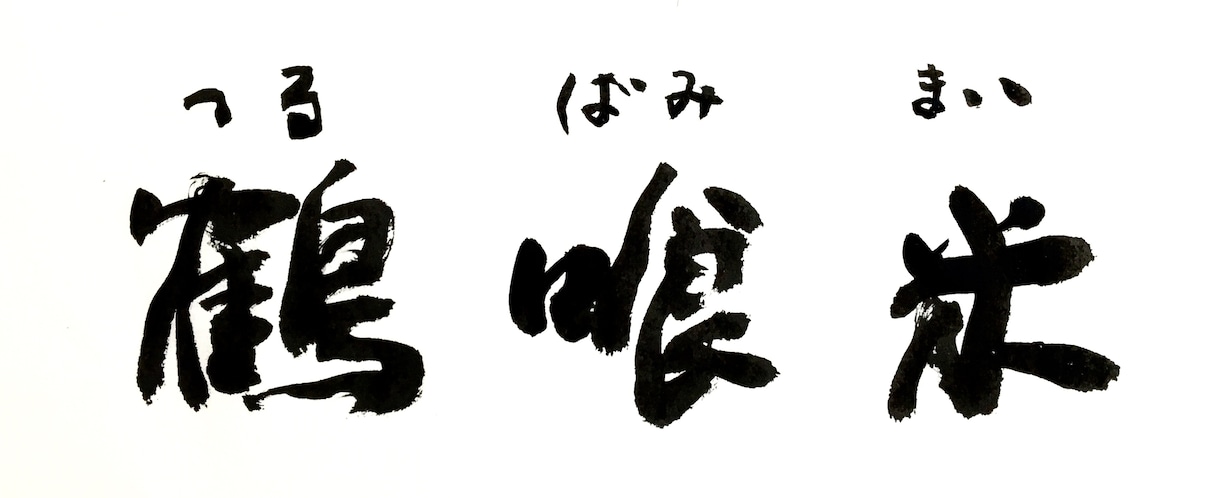 つるばみまい
鶴喰米